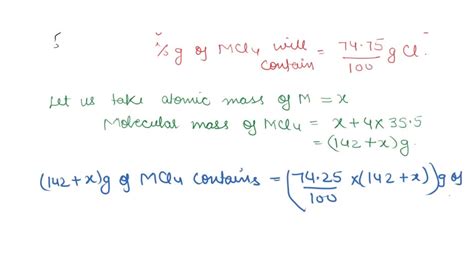 5
1/s g of MCl4 will contain = 74.75/100 g Cl.
Let us take atomic mass of M = x
Molecular mass of MCl4 = x + 4 x 35.5
= (142 + x) g.
(142 + x) g of MCl4 contains = (74.25/100 x (142 + x)) g of